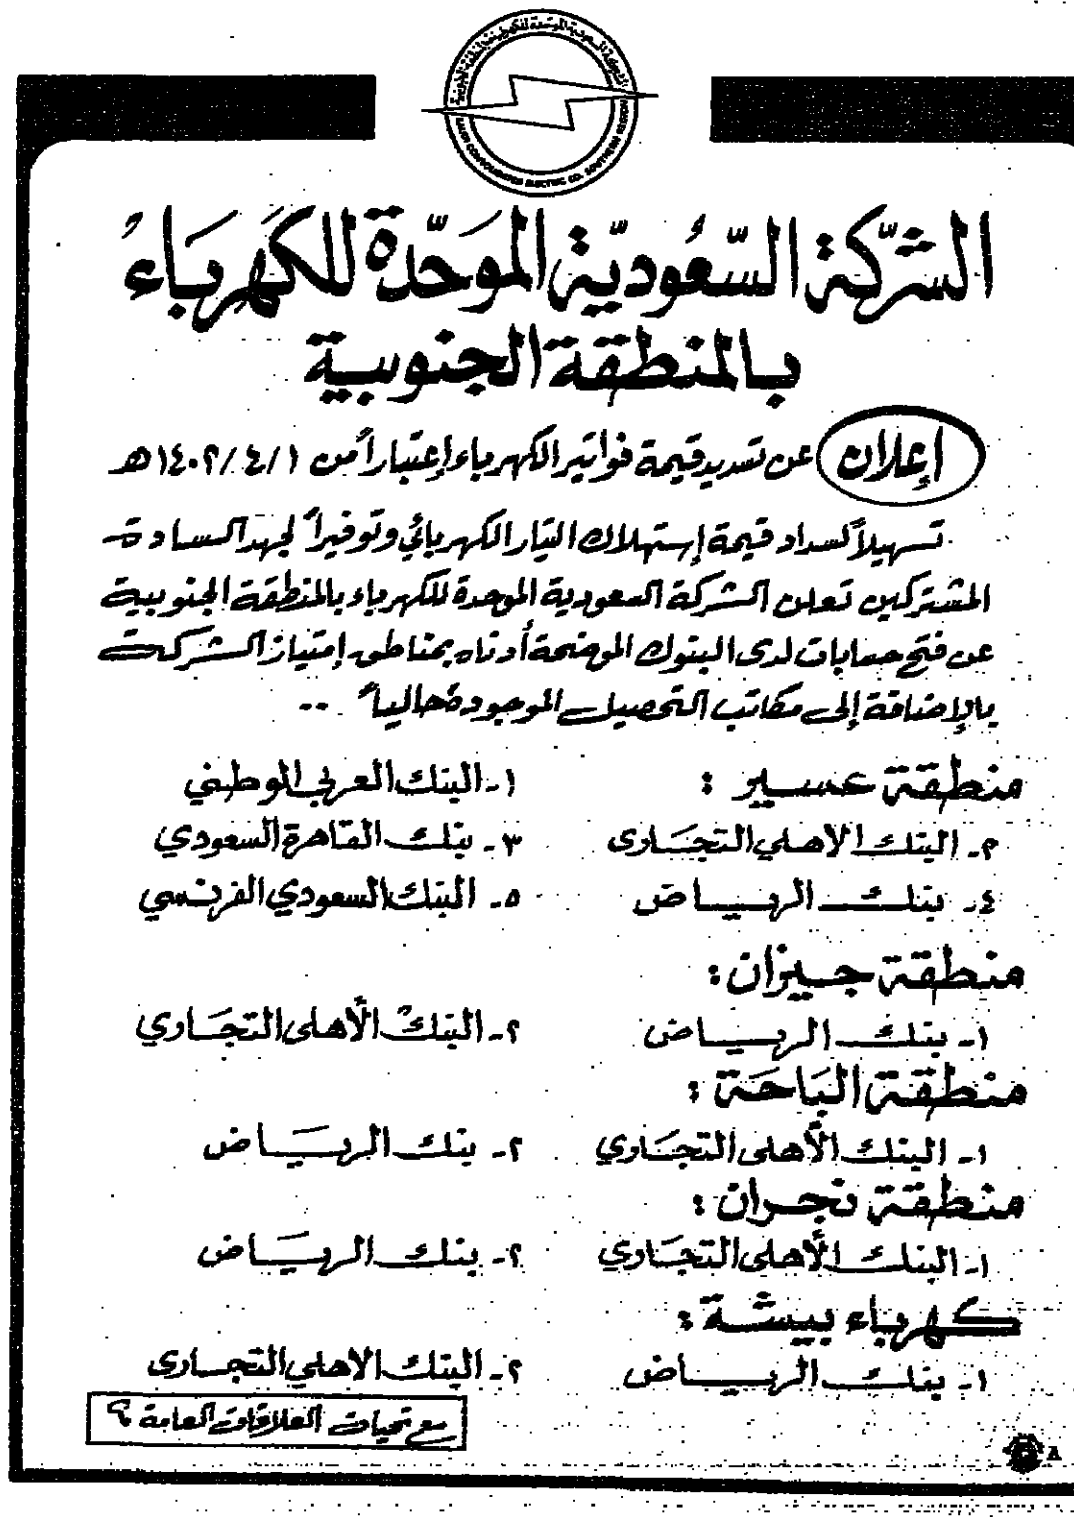 الشركة السعودية الموحدة للكهرباء
بالمنطقة الجنوبية
إعلان عن تسديد قيمة فواتير الكهرباء إعتباراً من ١/٤/١٤٠٢هـ
تسهيلاً لسداد قيمة إستهلاك التيار الكهربائي وتوفيراً لجهد السادة
المشتركين تعلن الشركة السعودية الموحدة للكهرباء بالمنطقة الجنوبية
عن فتح حسابات لدى البنوك الموضحة أدناه بمناطق إمتياز الشركة
بالإضافة إلى مكاتب التحصيل الموجودة حالياً ..
منطقة عسير : ١- البنك العربي الوطني
٢- البنك الاهلي التجارى ٣- بنك القاهرة السعودي
٤- بنك الرياض ٥- البنك السعودي الفرنسي
منطقة جيزان :
١- بنك الرياض ٢- البنك الأهلى التجاري
منطقة الباحة :
١- البنك الأهلى التجاري ٢- بنك الرياض
منطقة نجران :
١- البنك الأهلى التجاري ٢- بنك الرياض
كهرباء بيشة :
١- بنك الرياض ٢- البنك الاهلي التجارى
مع تحيات العلاقات العامة
٨